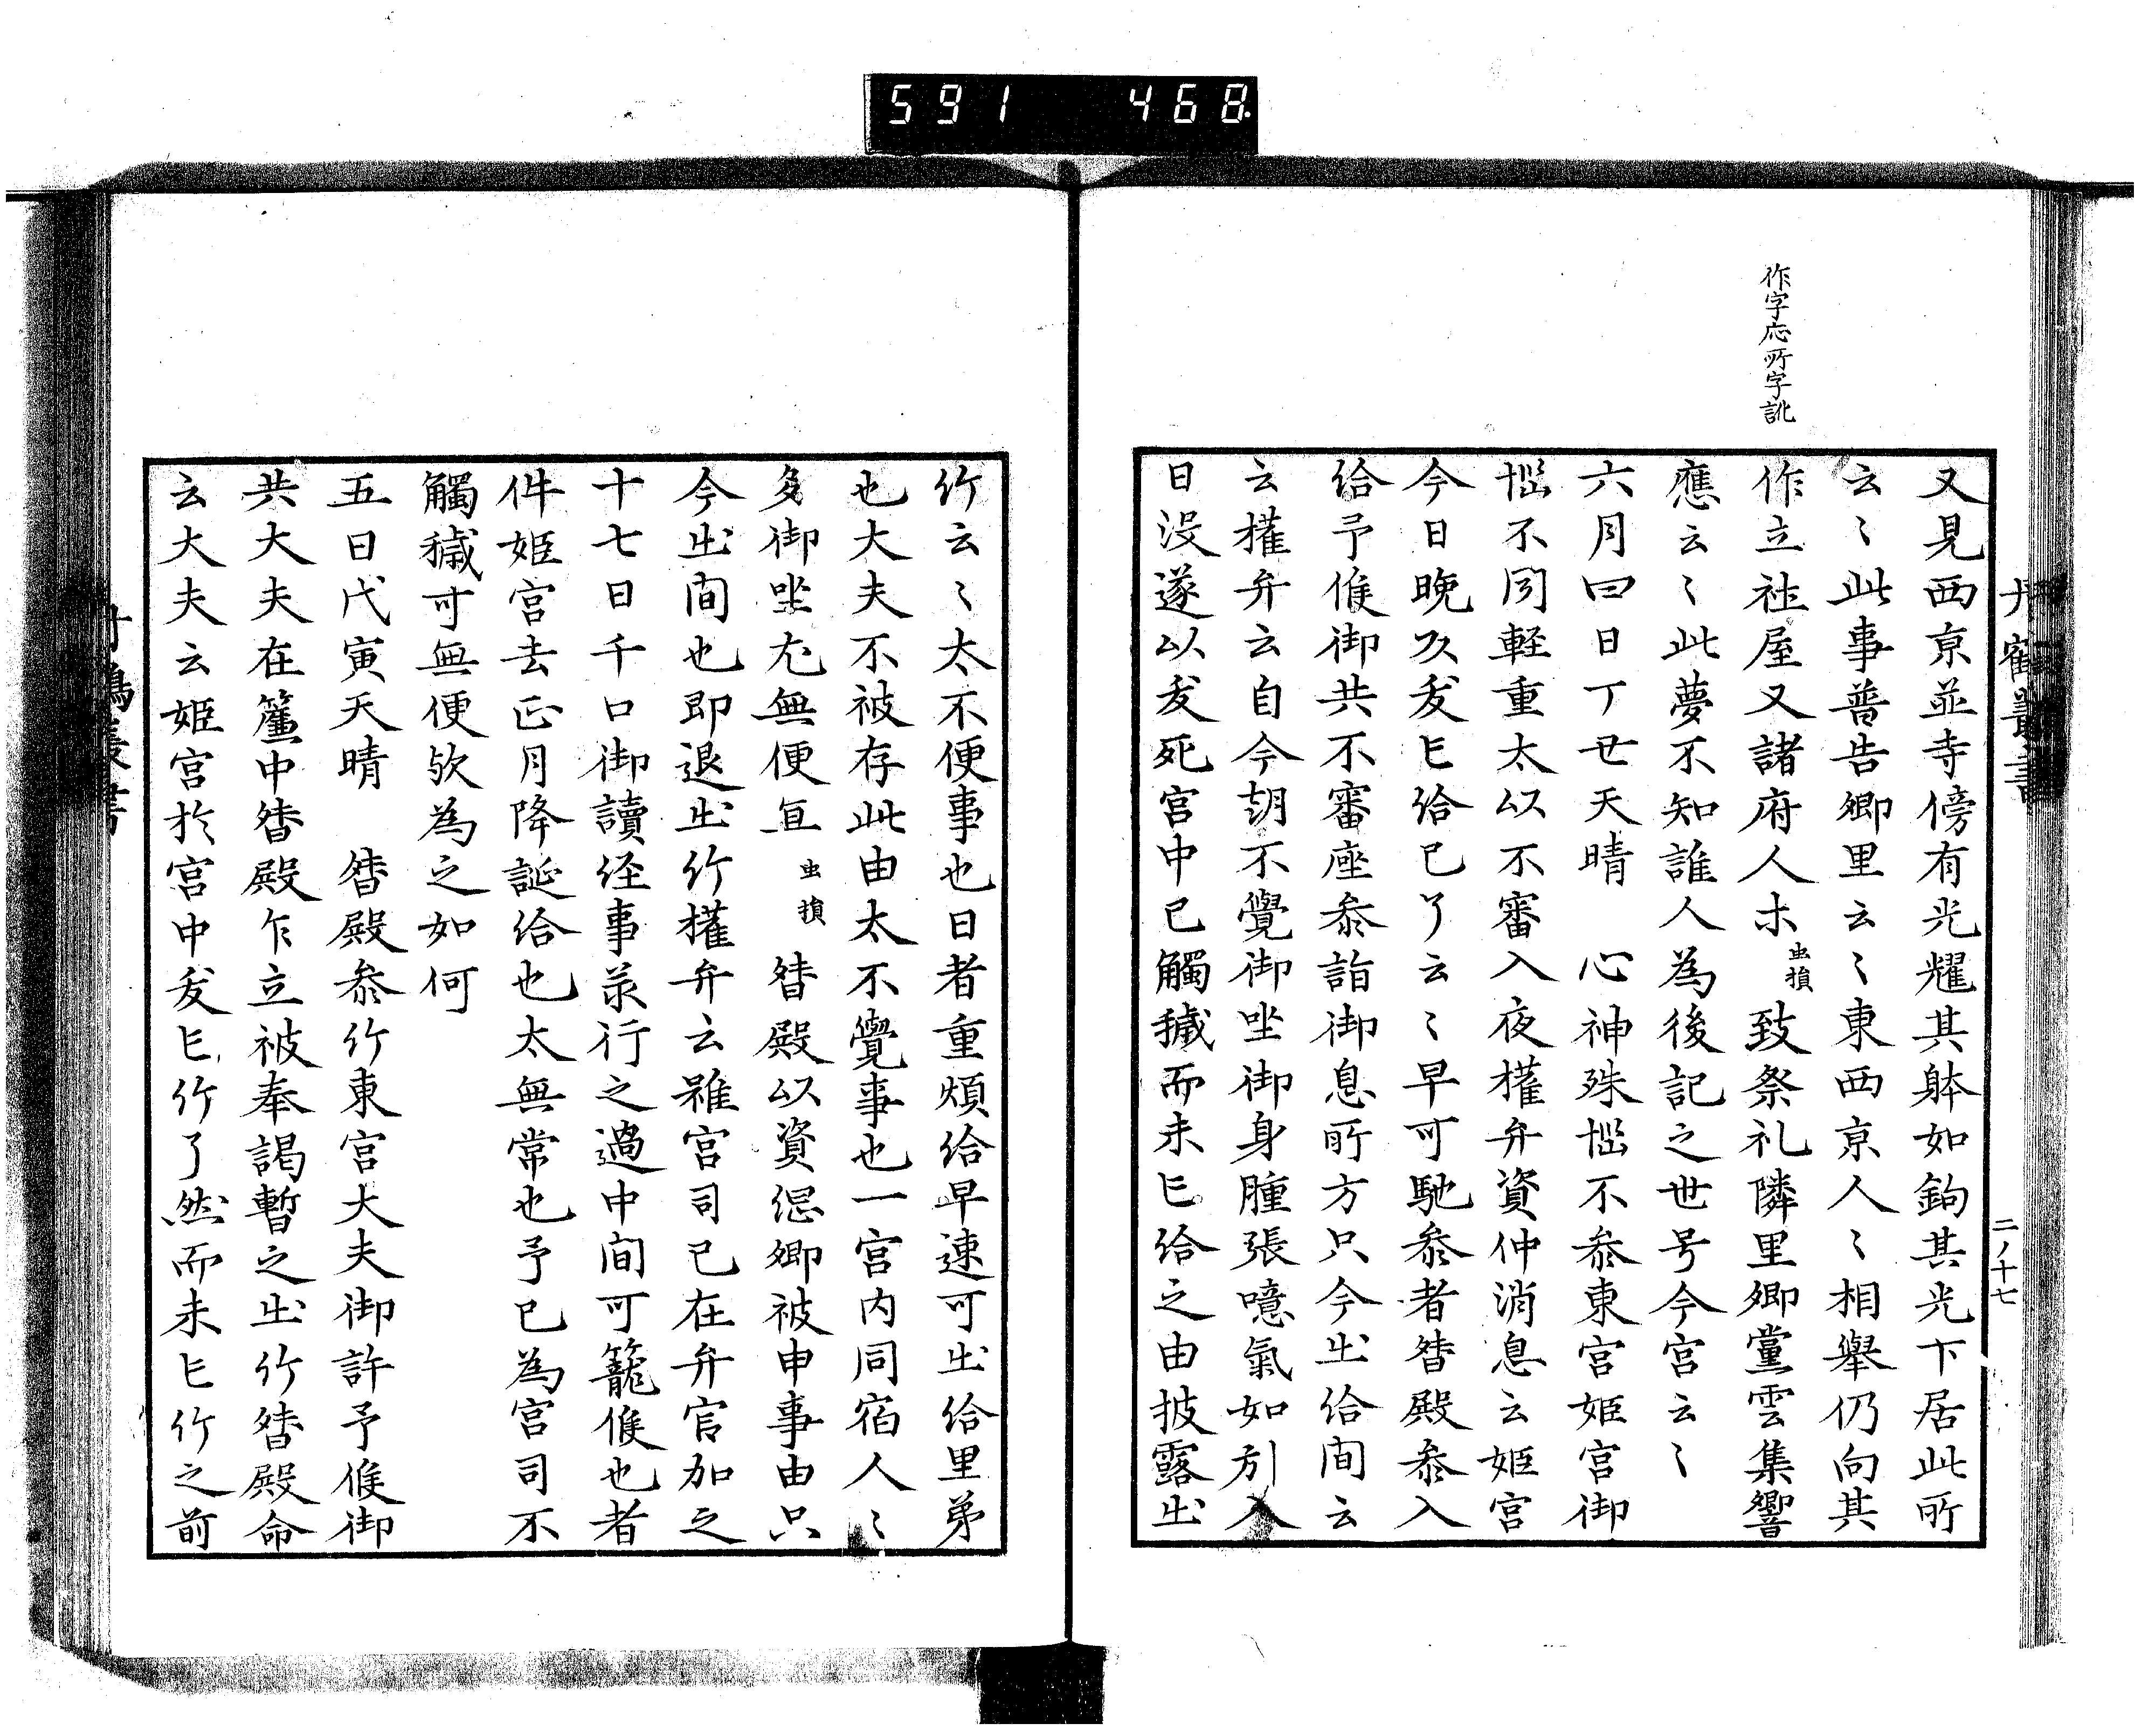 591 468
作字応所字訛
又見西京並寺傍有光耀其躰如鉤其光下居此所
云〻此事普告卿里云〻東西京人〻相舉仍向其
作立社屋又諸府人ホ虫損致祭礼隣里卿黨雲集響
應云〻此夢不知誰人為後記之世号今宮云〻
六月曰日丁丗天晴 心神殊惱不叅東宮姫宮御
惱不同軽重太以不審入夜権弁資仲消息云姫宮
今日晚及亥㔫給已了云〻早可馳叅者督殿叅入
給予候御共不審座叅詣御息所方只今出給间云
云権弁云自今胡不覺御坐御身腫張噫氣如引入
日没遂以亥死宮中已觸穢而未亡給之由披露出
丹鶴叢書
二ノ十七
竹云〻太不便事也日者重煩給早速可出給里弟
也大夫不被存此由太不覺事也一宮内同宿人〻
多御坐尤無便亘虫損 督殿以資綱卿被申事由只
今出间也即退出竹権弁云雖宮司已在弁官加之
十七日千口御讀経事𣴎行之過中间可籠候也者
件姫宮去正月降誕給也太無常也予已為宮司不
觸穢可無便欤為之如何
五日戊寅天晴 督殿叅竹東宮大夫御許予候御
共大夫在簾中督殿乍立被奉謁暫之出竹督殿命
云大夫云姫宮於宮中亥亡竹了然而未亡竹之前
丹鶴叢書